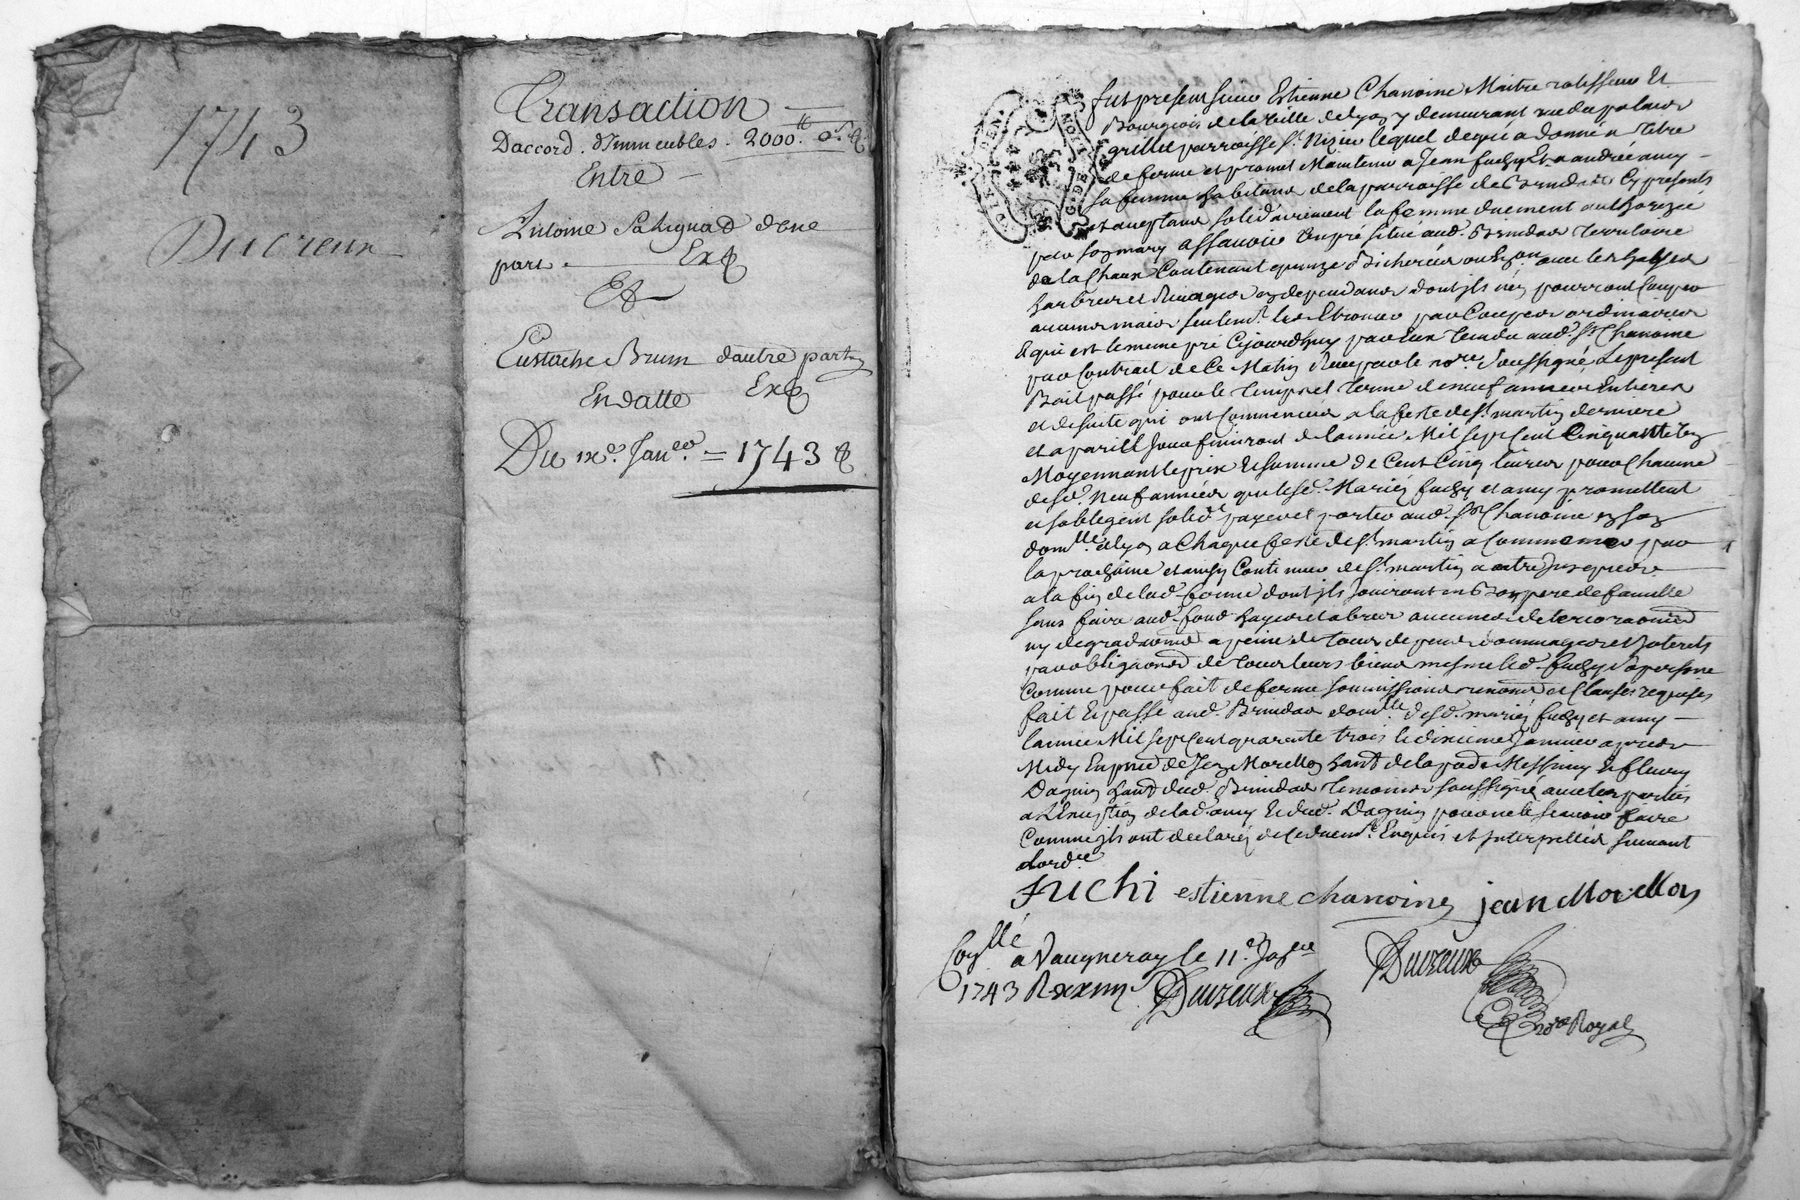 1743
Ducreux
Transaction
Daccord. d'Immeubles. 2000.tt 0s
Entre
Antoine d'une
part. Exp
Et
Eustache Brun d'autre part
Exp
En datte
Du ixe. Janer. = 1743
GEN DE LION
fut present sieur Estienne Chanoine Maitre rotisseur Et
Bourgeois de la Ville de Lyon y demeurant rue du palais
grillet parroisse st. Nizier lequel de gré a donné a titre
de ferme et promet Maintenir a Jean fuchy Et a andrée amy
sa femme habitans de la parroisse de Brindas Cy presents
et acceptans solidairement la femme duement authorizée
par son mary assavoir Un pré situé aud. Brindas territoire
de la Chaux Contenant quinze Bicherées ou Environ avec les hayes
harbres et dependances dont ils n'en pourront Couper
aucunes mais seulemt. les par Coupes ordinaires
Et qui est le meme pré Cejourdhuy par Eux vendu aud. sr. Chanoine
par Contrait de Ce Matin Receu par le nore. soussigné, Le present
Bail passé pour le temps et terme de neuf années Entieres
et de suite qui ont Commencées a la feste de st. martin derniere
et a pareil jour finiront de l'année Mil sept Cent Cinquante Un
Moyennant le prix Et somme de Cent Cinq livres pour Chacune
desd. Neuf années que lesd. Mariés fuchy et amy promettent
et soblegent solidt. payer et porter aud. sr. Chanoine en son
domlle. a Lyon a Chaque feste de st. martin a Commencer par
la prochaine et ainsy Continuer de st. martin a autre jusques
a la fin de lad. ferme dont ils jouiront en Bon pere de famille
sans faire aud. fond hayes et abres aucunes deteriorations
ny degradations a peine de tous depens dommages et Interets
par obligations de tous leurs biens mesme led. fuchy sa personne
Comme pour fait de ferme soumissions renons. et Clauses requises
fait Et passé aud. Brindas domlle. desd. mariés fuchy et amy
l'année Mil sept Cent quarente trois le dixieme Janvier apres
Midy En presce de Jean Morellon habt. de la pade. Messimy Et fleury
Dagnin habt. dud. Brindas temoins soussigné avec les parties
a L'Exception de lad. amy Et dud. Dagnin pour ne le scavoir faire
Comme ils ont declarés de Ce duemt. Enquis et Interpellés suivant
l'ordce
fuchi estienne chanoine jean Morellon
Conllé a Vaugneray le 11e. Janer
1743 R Ducreux
Ducreux
nore Royal